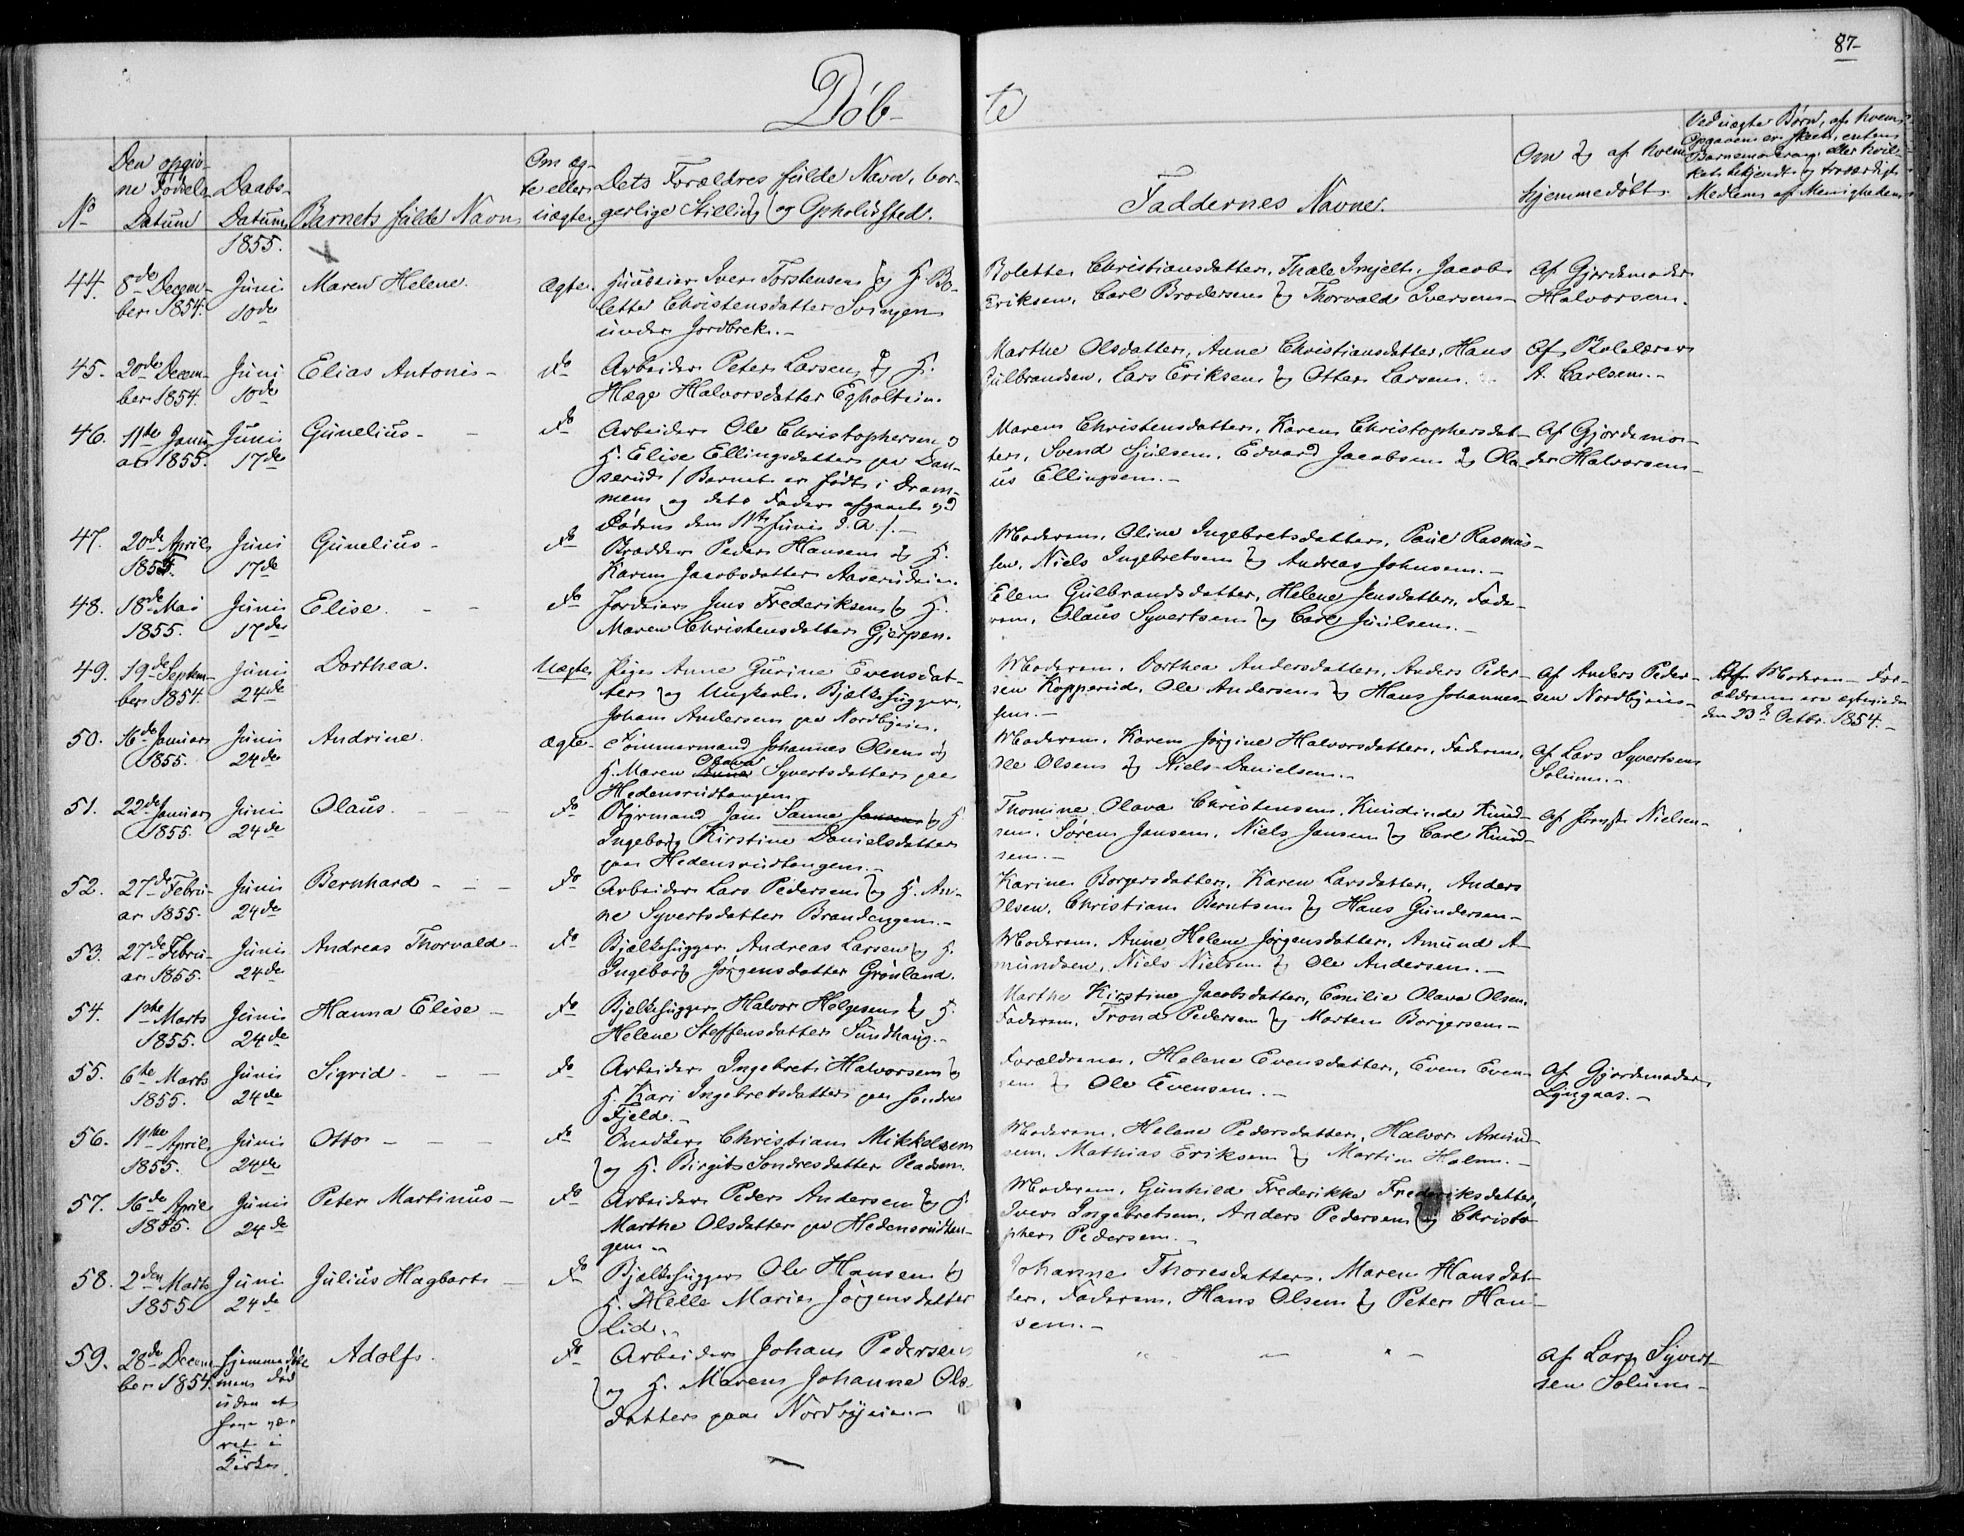 87-
Døb-
te
No
Den opgiv-
ne Fødsels
Datum
Daabs-
Datum
1855.
Barnets fulde Navn
Om æg-
te eller
uægte
Dets Forældres fulde Navn, bor-
gerlige Stilling og Opholdsted.
Faddernes Navne.
Om og af hvem
hjemmedøbt.
Ved uægte Børn, af hvem
Opgaven er skeet, enten
Barnemoderen eller hvil-
ket bekjendt og troværdigt
Medlem af Menigheden
44.
8de Decem-
ber 1854.
Juni
10de
Maren Helene.
Ægte.
Huuseier Iver Torstensen og H. Bo-
lette Christensdatter Svingen
under Jordbrek.-
Bolette Christiansdatter, Thale Ingjelts, Jacob
Eriksen, Carl Brodersen og Thorvald Iversen-
Af Gjordemoder
Halvorsen.
45.
20de Decem-
ber 1854.
Juni
10de
Elias Antonis-
do
Arbeider Peter Larsen og H.
Hæge Halvorsdatter Egholteie.
Marthe Olsdatter, Anne Christiansdatter, Hans
Gulbrandsen, Lars Eriksen og Otter Larsen.
Af Skolelærer
A. Carlsen.-
46.
11te Janu-
ar 1855.
Juni
17de
Gunelius-
do
Arbeider Ole Christophersen og
H. Elise Ellingsdatter paa Dan-
serud / Barnet er født i Dram-
men og dets Fader afgaaet ved
Døden den 11te Juni d. A./.-
Maren Christensdatter, Karen Christophersdat-
ter, Svend Sjulsen, Edvard Jacobsen og Ola-
us Ellingsen.-
Af Gjordemo-
der Halvorsen-
47.
20de April
1855.
Juni
17de
Gunelius-
do
Brædder Peder Hansen og H.
Karen Jacobsdatter Aaserudeie.
Moderen, Oline Ingebretsdatter, Paul Rasmus-
sen, Niels Ingebretsen og Andreas Johnsen.-
48.
18de Mai
1855.
Juni
17de
Elise.
do
Jordeier Jens Frederiksen og H.
Maren Christensdatter Gjerpen.
Elen Gulbrandsdatter, Helene Jensdatter, Fade-
ren, Olaus Syvertsen og Carl Juulsen.-
49.
19de Septem-
ber 1854.
Juni
24de
Dorthea.
Uægte.
Pige Anne Gurine Evensdat-
ter og Ungkarl, Bjælkehugger,
Johan Andersen paa Nordbyeie.
Moderen, Dorthea Andersdatter, Anders Peder-
sen Kopperud, Ole Andersen og Hans Johannes-
sen.-
Af Anders Peder-
sen Nordbyeie-
Af Moderen- For-
ældrene ere ægteviede
den 23de Octbr. 1854.-
50.
16de Januar
1855.
Juni
24de
Andrine.
Ægte-
Tømmermand Johannes Olsen og
H. Maren Olava Syvertsdatter paa
Hedensrudtangen.
Moderen, Karen Jørgine Halvorsdatter, Faderen,
Ole Olsen og Niels Danielsen.-
Af Lars Syvertsen
Solum.-
51.
22de Januar
1855.
Juni
24de
Olaus.
do
Styrmand Jens Sanne Jansen og H
Ingeborg Kirstine Danielsdatter
paa Hedensrudtangen.-
Thomine Olava Christensen, Knudinde Knud-
sen, Søren Jensen, Niels Jensen og Carl Knud-
sen.-
Af Nielsen-
52.
27de Febru-
ar 1855.
Juni
24de
Bernhard - - -
do
Arbeider Lars Pedersen og H. An-
ne Syvertsdatter Brandengen.-
Karine Borgersdatter, Karen Larsdatter, Anders
Olsen, Christian Berntsen og Hans Gundersen-
53.
27de Febru-
ar 1855.
Juni
24de
Andreas Thorvald-
do
Bjælkehugger Andreas Larsen og H.
Ingeborg Jørgensdatter Grønland.
Moderen, Anne Helene Jørgensdatter, Amund A-
mundsen, Niels Nielsen og Ole Andersen.-
54.
1ste Marts
1855.
Juni
24de
Hanna Elise-
do
Bjelkehugger Halvor Helgesen og H.
Helene Steffensdatter Sundhaug.-
Marthe Kirstine Jacobsdatter, Emilie Olava Olsen,
Faderen, Trond Pedersen og Morten Borgersen-
55.
6te Marts
1855.
Juni
24de
Sigrid - - -
do
Arbeider Ingebret Halvorsen og
H. Kari Ingebretsdatter paa Søndre
Fjeld.-
Forældrene, Helene Evensdatter, Even Even-
sen og Ole Evensen.-
Af Gjordemoder
Lyngaas.-
56.
11te April
1855.
Juni
24de
Otto - - -
do
Snedker Christian Mikkelsen
og H. Birgit Sondresdatter Pladsen.
Moderen, Helene Pedersdatter, Halvor Amund-
sen, Mathias Eriksen og Martin Holm.-
57.
16de April
1855.
Juni
24de
Peter Martinus-
do
Arbeider Peder Andersen og H
Marthe Olsdatter paa Hedensrudtan-
gen.-
Moderen, Gunhild Frederikke Frederiksdatter,
Iver Ingebretsen, Anders Pedersen og Christo-
pher Pedersen.-
58.
2den Marts
1855.
Juni
24de
Julius Hagbart-
do
Bjælkehugger Ole Hansen og
H. Helle Marie Jørgensdatter
Lid.-
Johanne Thoresdatter, Maren Hansdat-
ter, Faderen, Hans Olsen og Peter Han-
sen.-
59.
28de Decem-
ber 1854.
hjemmedøbt
men død
uden at
have væ-
ret i
Kirke.
Adolf.
do
Arbeider Johan Pedersen
og H. Maren Johanne Ols-
datter paa Nordbyeie.-
" - - " -
Af Lars Syvert-
sen Solum-